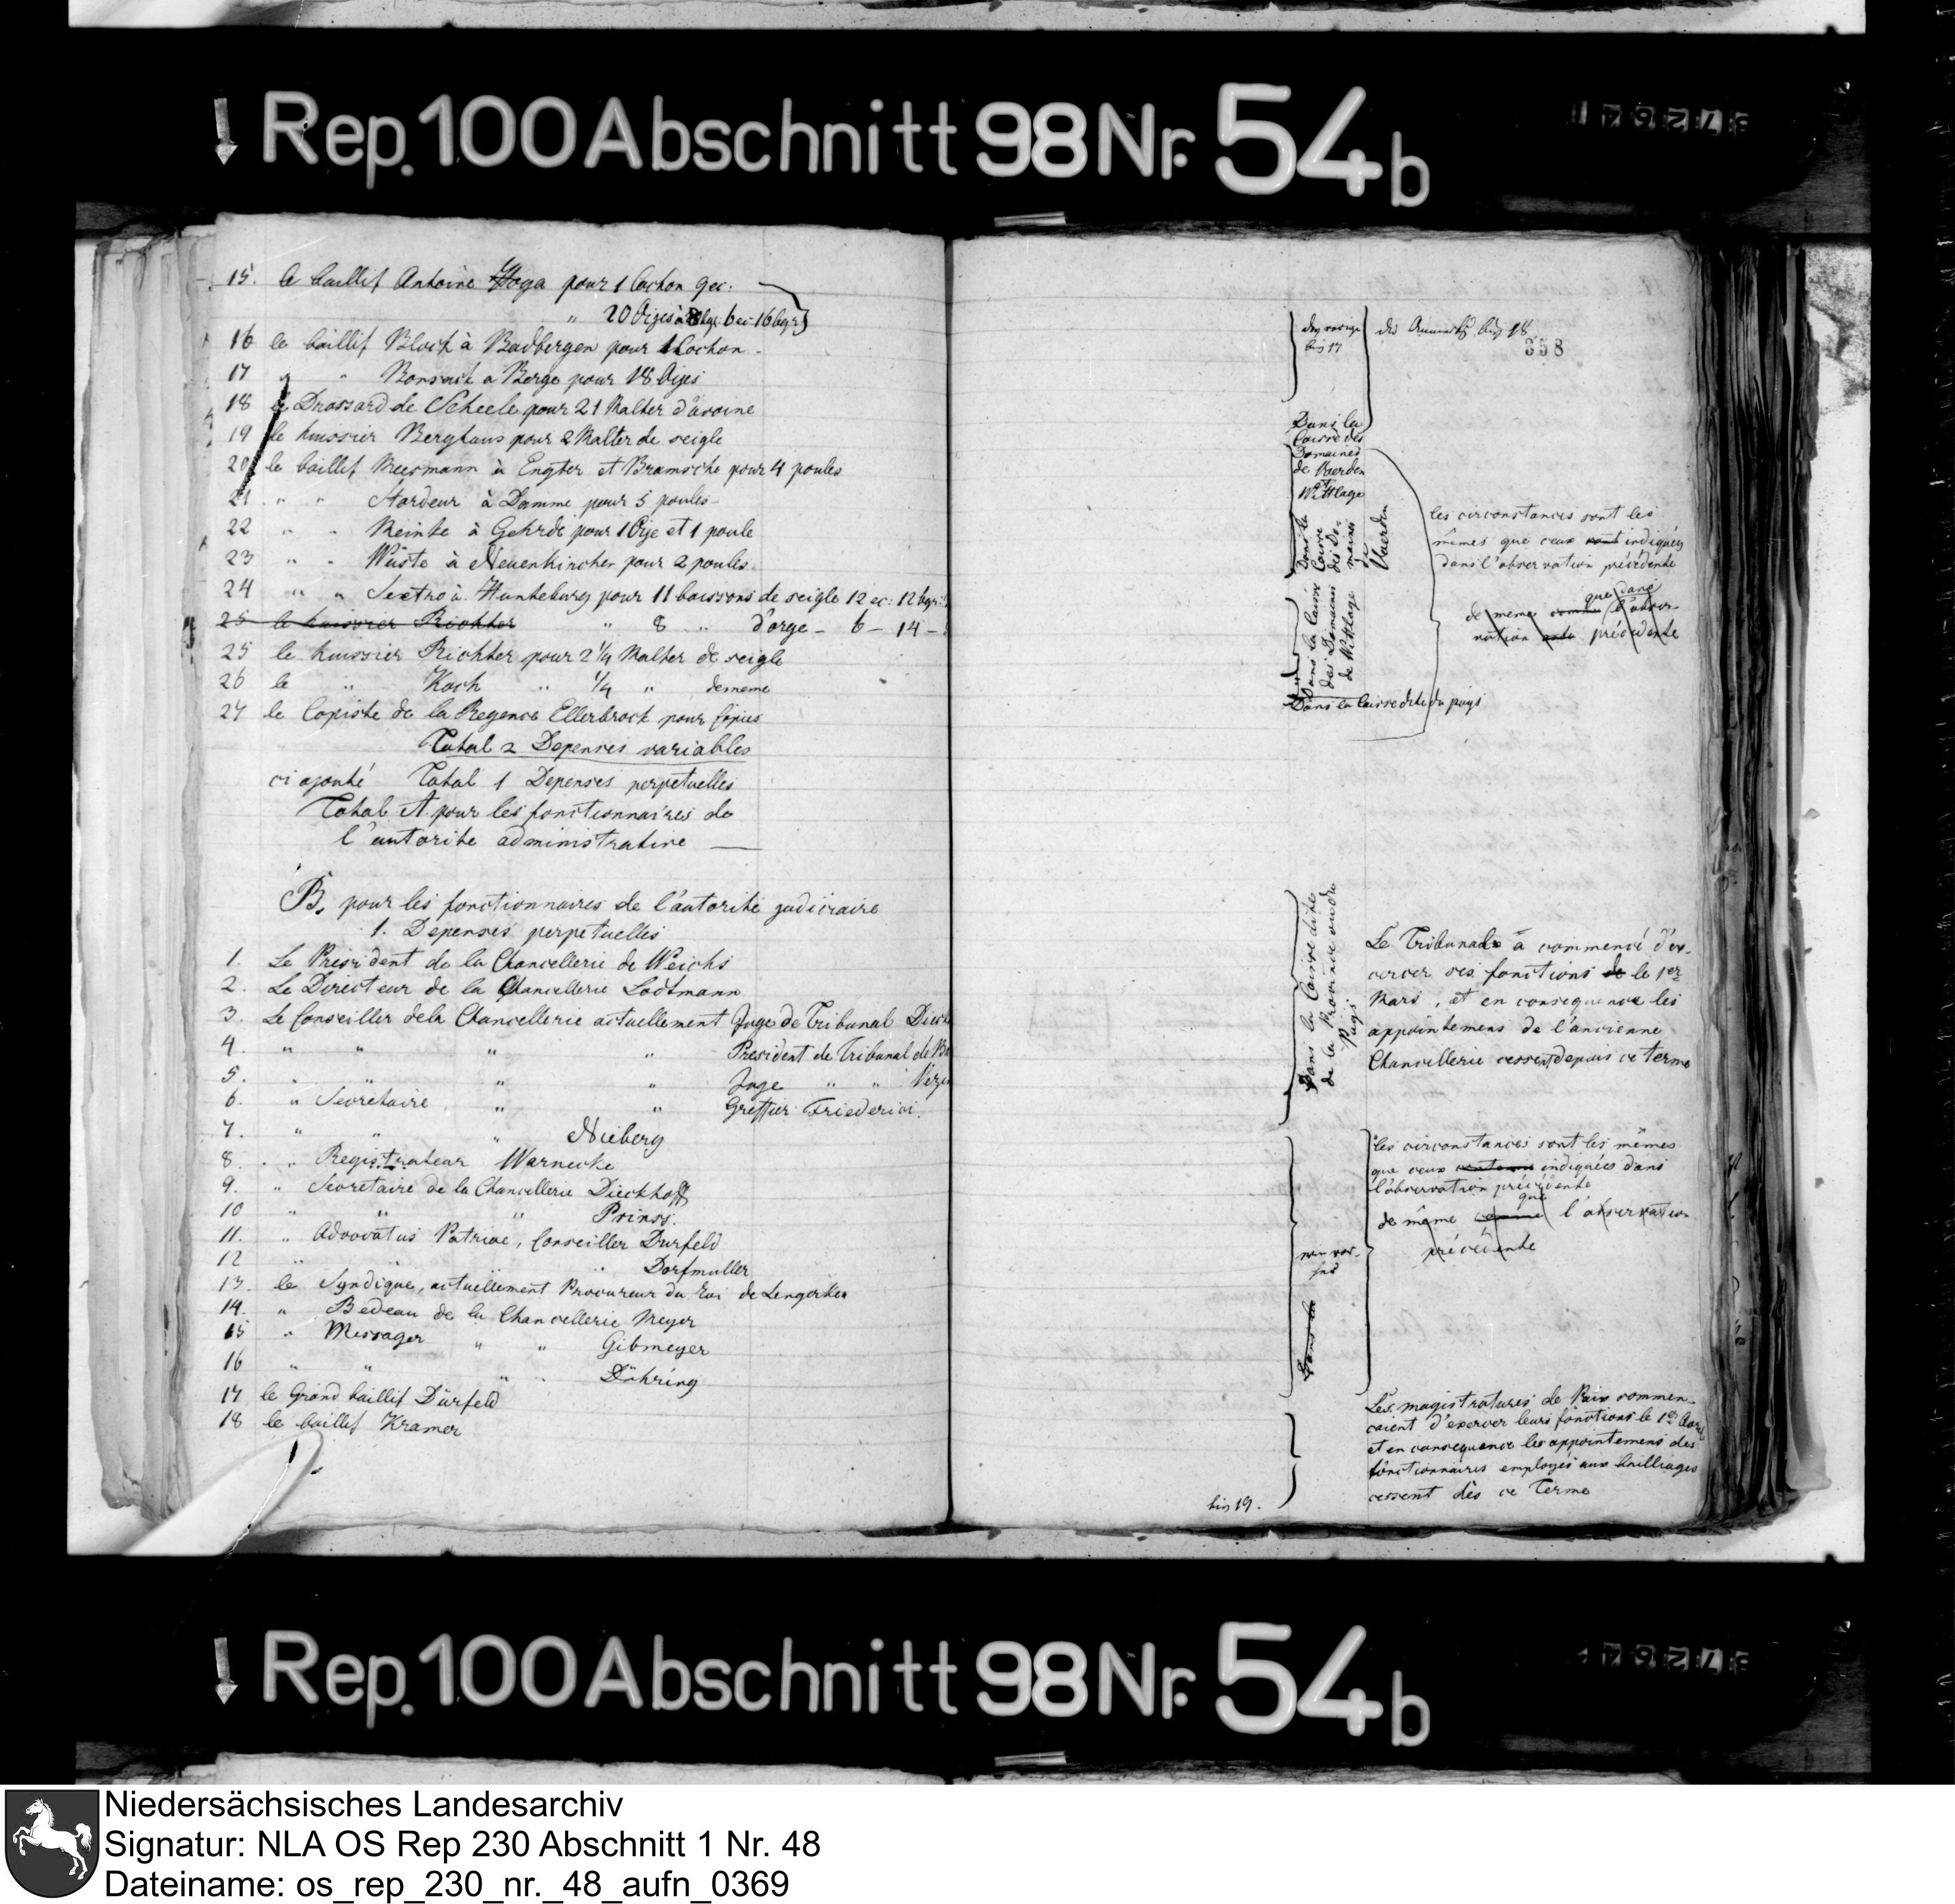 Rep. 100 Abschnitt 98 Nr. 54b
15. le baillif Antoine Voga pour 1 Cochon 9 ec.
" 20 Oyes à 8 bgr. 6 ec 16 bgr
16 le baillif Block à Badbergen pour 1 Cochon
17 " " a Berge pour 18 Oyes
18 le Drossard de Scheele pour 21 Malter d'avoine
19 le huissier Berghaus pour 2 Malter de seigle
20 le baillif Meesmann à Engter et Bramsche pour 4 poules
21 " " Hardeur à Damme pour 5 poules
22 " " Meinke à Gehrde pour 1 Oye et 1 poule
23 " " Wüste à Neuenkirchen pour 2 poules
24 " " Sextro à Hunteburg pour 11 boissons de seigle 12 ec: 12 bgr:
25 le huissier Richter " 8 " d'orge - 6 - 14 -
25 le huissier Richter pour 2 1/4 Malter de seigle
26 le " Koch " 1/4 " de meme
27 le Copiste de la Regence Ellerbrock pour Copies
Total 2 Depenses variables
ci ajouté Total 1 Depenses perpetuelles
Total A pour les fonctionnaires de
l'autorite administrative
B. pour les fonctionnaires de l'autorité judiciaire
1. Depenses perpetuelles
1. Le President de la Chancellerie de Weichs
2. Le Directeur de la Chancellerie Lodtmann
3. Le Conseiller de la Chancellerie actuellement Juge de Tribunal
4. " " " " President de Tribunal de
5. " " " " Juge " "
6. " Secretaire " " Greffier Friederici.
7. " " " Nieberg
8. " Registrateur Warnecke
9. " Secretaire de la Chancellerie Dieckhoff
10 " " " Prinss.
11. " Advocatus Patriae, Conseiller Durfeld
12 " " " Dorfmuller
13. le Syndique, actuellement Procureur du Roi de Lengerke
14. " Bedeau de la Chancellerie Meyer
15 " Messager " " Gibmeyer
16 " " " " Dühring
17 le Grand baillif Dürfeld
18 le baillif Kramer
bis 17
bis 18
358
Dans la
Caisse des
Domaines
de Voerden
Wittlage
Dans la
Caisse
des Do-
maines
de
Voerden
Dans la Caisse
des Domaines
de Wittlage
Dans la Caisse dite du pays
les circonstances sont les
mêmes que ceux sont indiqués
dans l'observation précédente
que dans
de meme comme l'obser-
vation précédente
Dans la Caisse dite
de la Province ou du
Pays.
Le Tribunal a commencé d'ex-
ercer ses fonctions de le 1er
Mars, et en consequence les
appointemens de l'ancienne
Chancellerie cessent depuis ce terme
les circonstances sont les mêmes
que ceux indiquées dans
l'observation précédente
que
de même comme l'observation
précédente
Dans la
Les magistratures de Paix commen-
caient d'exercer leurs fonctions le 1er
et en consequence les appointemens des
fonctionnaires employés aux bailliages
cessent dès ce Terme
bis 19.
Rep. 100 Abschnitt 98 Nr. 54b
Niedersächsisches Landesarchiv
Signatur: NLA OS Rep 230 Abschnitt 1 Nr. 48
Dateiname: os_rep_230_nr._48_aufn_0369